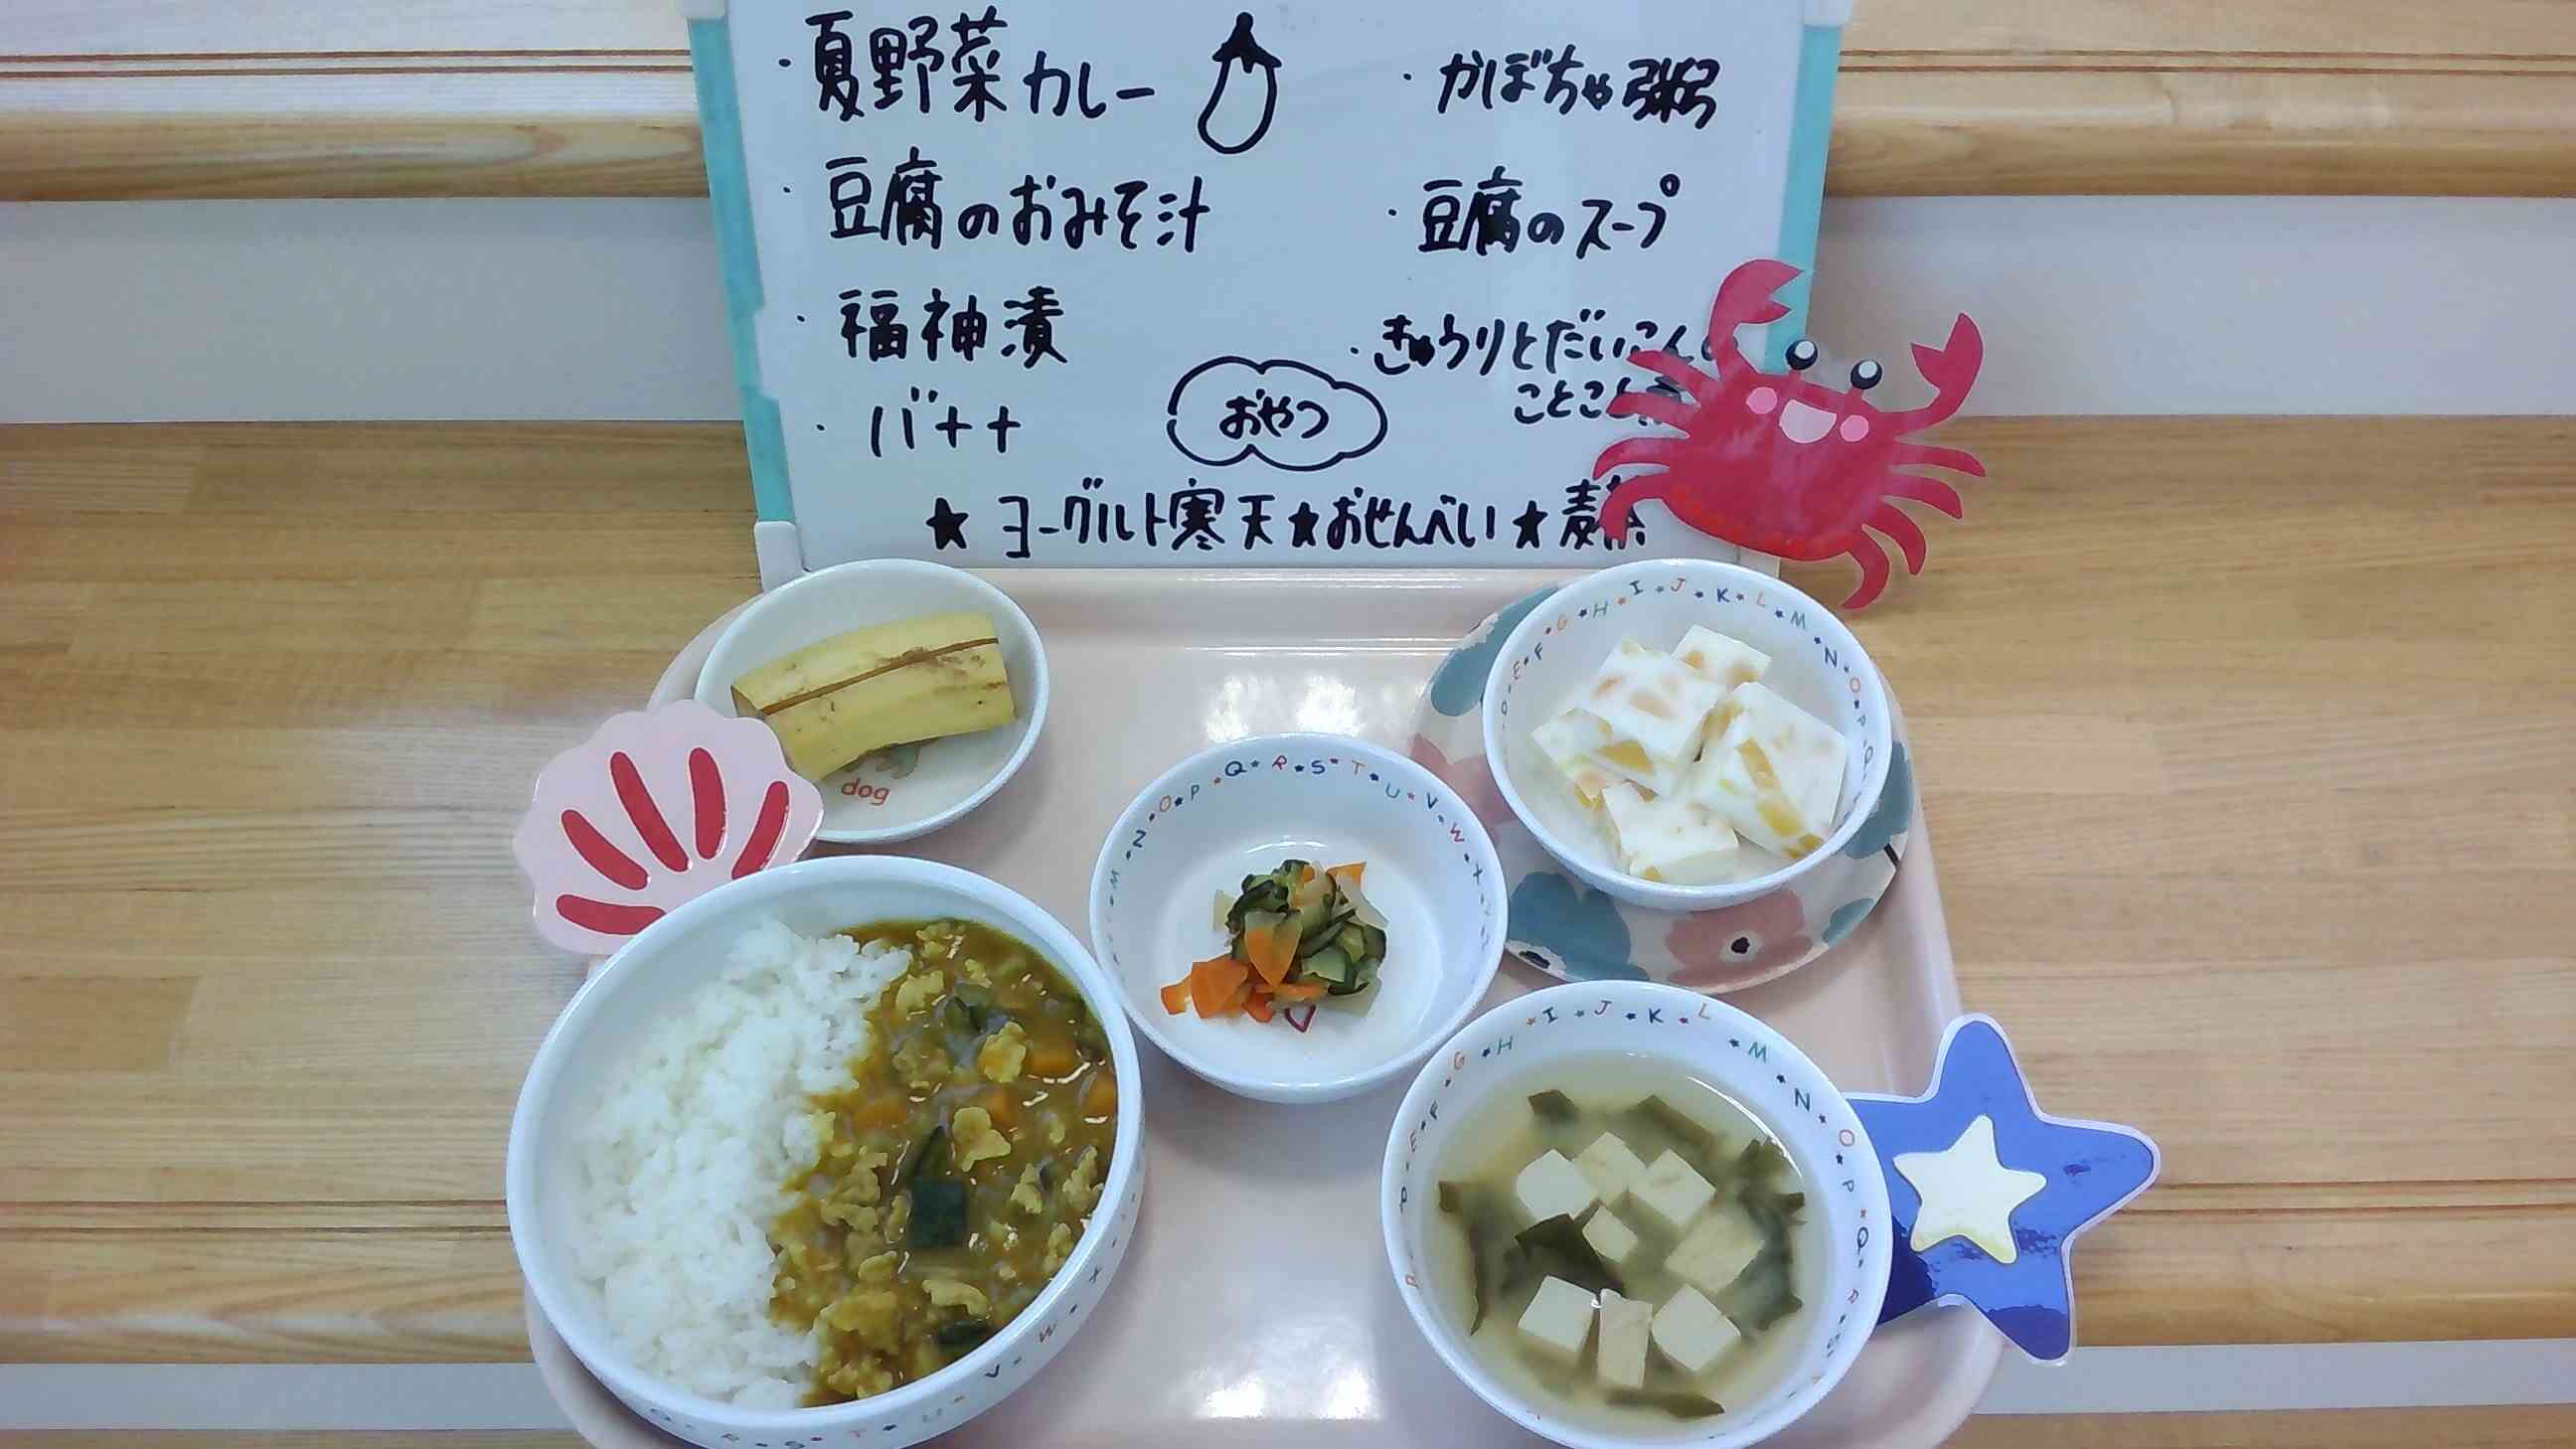 ・夏野菜カレー
・豆腐のおみそ汁
・福神漬
・バナナ
・かぼちゃ粥
・豆腐のスープ
・きゅうりとだいこんの
ことこと
おやつ
★ヨーグルト寒天★おせんべい★麦茶
dog
M★N★O★P★Q★R★S★T★U★V★W★X
E★F★G★H★I★J★K★L★M★N★O★P★Q
E★F★G★H★I★J★K★L★M★N★O★P★Q★R★S
Q★R★S★T★U★V★W★X